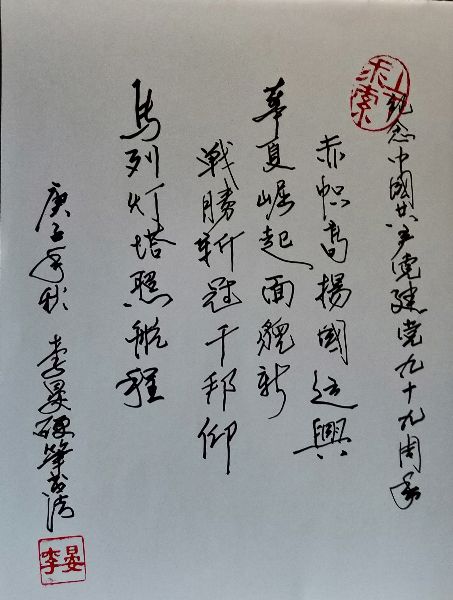 纪念中國共产党建党九十九周年
赤帜高揚國运興
華夏崛起面貌新
戰勝新冠千邦仰
馬列灯塔照航程
庚子年秋 李晏硬筆书法
求索
李晏